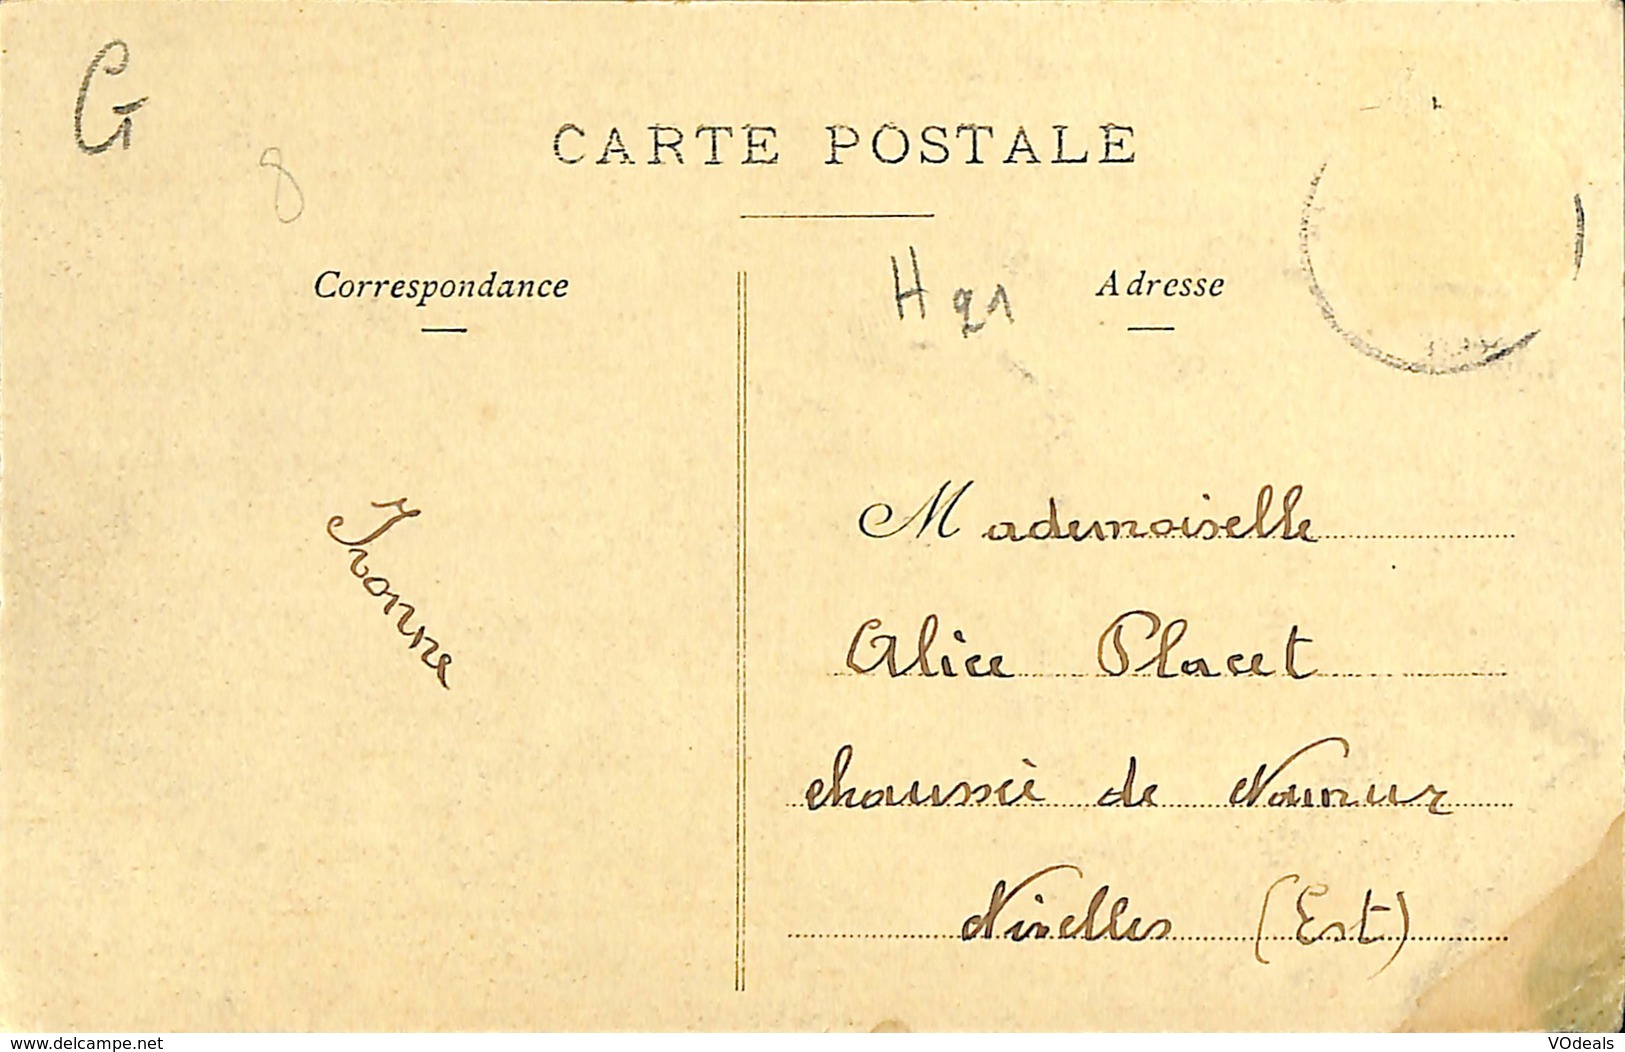 G
8
CARTE POSTALE
Correspondance
H 21
Adresse
Yvonne
Mademoiselle
Alice Placet
chaussée de Namur
Nivelles (Est)
www.delcampe.net
VOdeals